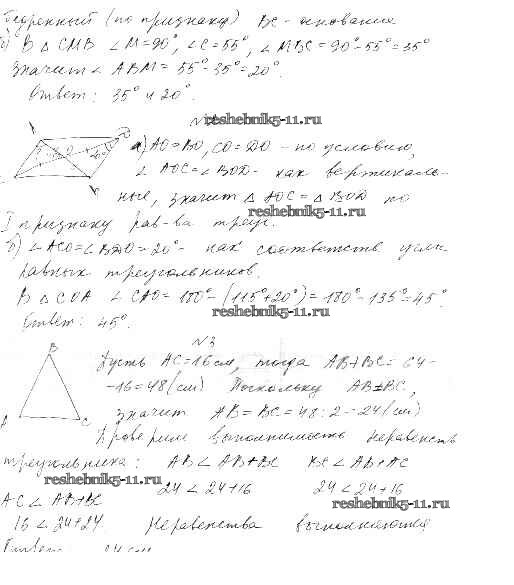 бедренный (по признаку) BC - основание
б) В △ CMB ∠M=90°, ∠C=55°, ∠MBC=90°-55°=35°
Значит ∠ABM = 55°-35°=20°.
Ответ: 35° и 20°.
reshebnik5-11.ru
а) AO=BO, CO=DO - по условию,
∠AOC=∠BOD - как вертикаль-
ные, значит △AOC = △BOD по
reshebnik5-11.ru
I признаку рав-ва треуг.
б) ∠ACO=∠BDO=20° - как соответств. углы
равных треугольников.
В △ COA ∠CAO=180°-(115°+20°)=180°-135°=45°.
reshebnik5-11.ru
Ответ: 45°.
N3
B
A
C
Пусть AC=16см, тогда AB+BC=64-
-16=48(см) Поскольку AB=BC,
значит AB=BC=48:2=24(см)
Проверим выполнимость неравенств
треугольника: AB<AB+BC BC<AB+AC
reshebnik5-11.ru
24<24+16 24<24+16
AC<AB+BC
reshebnik5-11.ru
16<24+24 Неравенства выполняются
Ответ: 24см